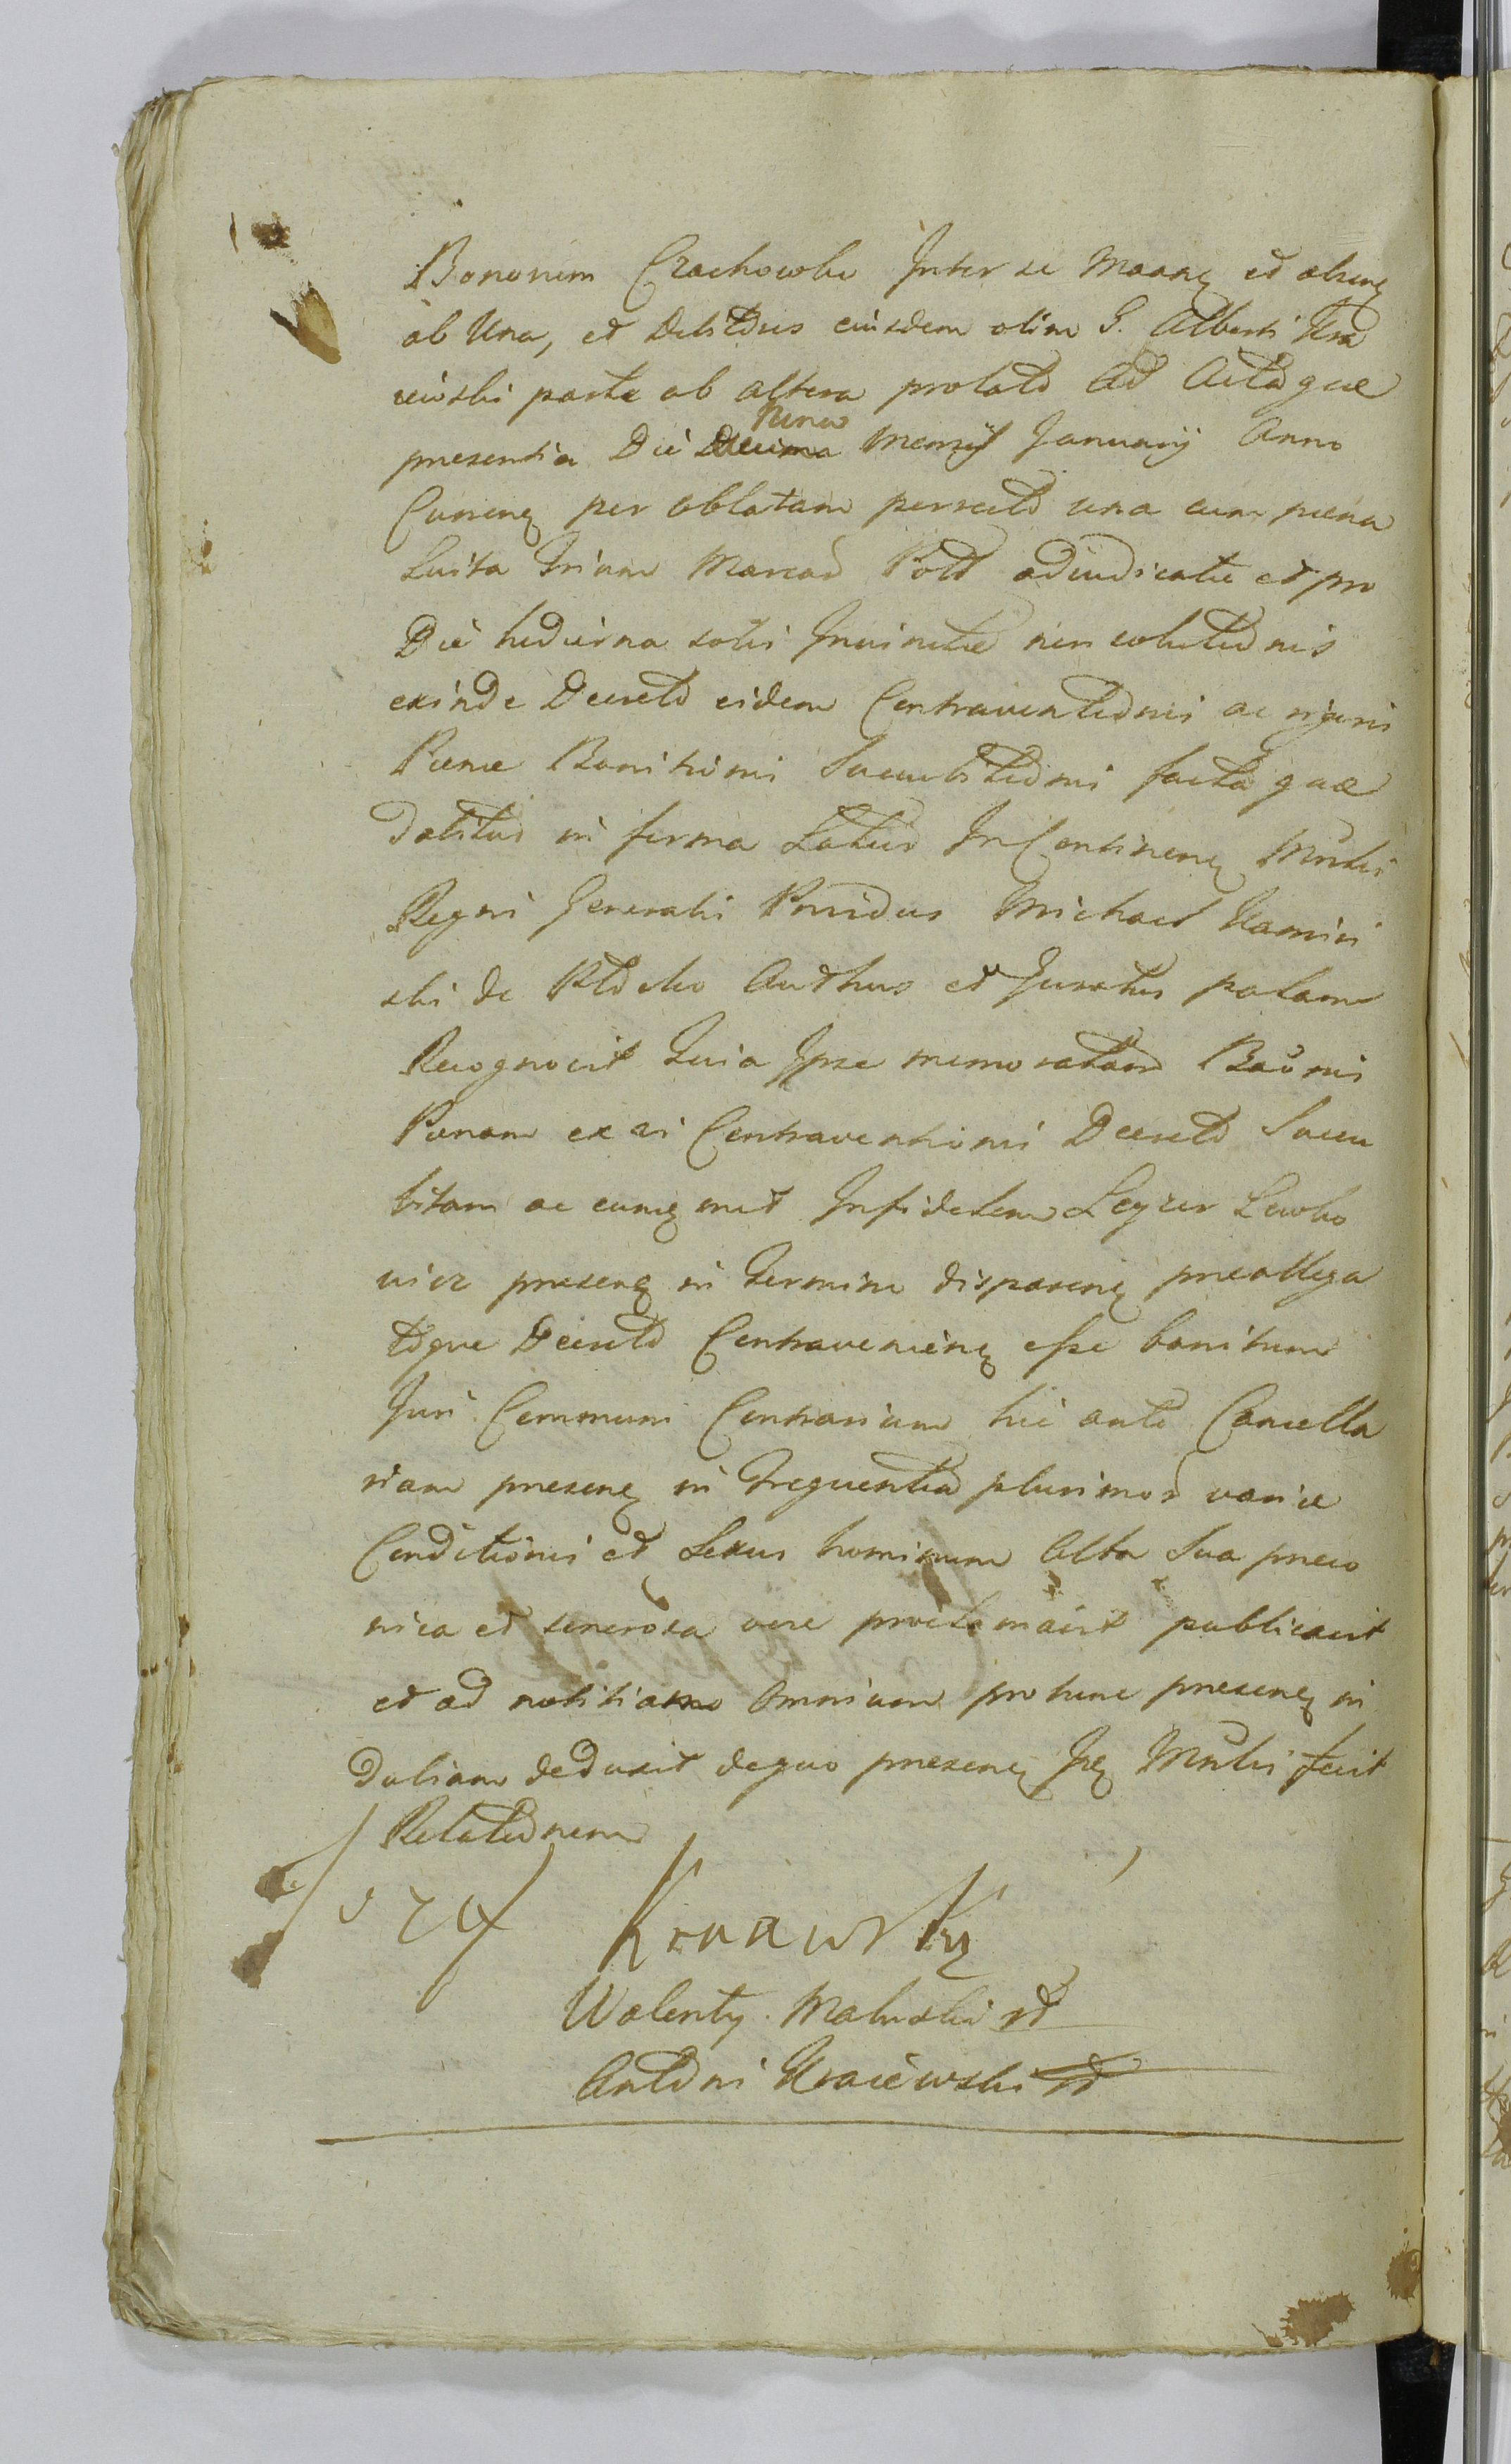 Bonorum Czachowki Inter se Moang et abseng
ab Una, et Debitores eiusdem olim G. Alberti Kra
iewski parte ab altera prolato ad Actaque
presentia Die Decima Nona Mensis Januarij Anno
Currenq per oblatam perrecto una cum pœna
Luita Trium Marcar Polo adiudicatæ et pro
Die hodierna solvi Iniunctæ non solutionis
exinde Decreto eidem Contraventionis ac rigoris
Pœnæ Banitionis Succubitionis factaque
dobitus in forma Latius In Continenq Mrlis
Regni Generalis Providus Michael Kamin
ski de Plocko Authus et Juratus palam
Recognovit Quia Ipse memoratam Baonis
Pœnam ex vi Contraventionis Decreto Succu
bitam ac eumqmet Infidelem Leyzer Lewko
wicz presenq in Termino disparenq preallega
toque Decreto Contravenienq esse banitum
Juri Communi Contrarium hic ante Cancella
riam presenq in Frequentia plurimor variæ
Conditionis et Sexus hominum Alta Sua præco
nica et senerosa voce proclamavit publicavit
et ad notitiam Omnium protunc presenq in
dubiam deduxit dequo presenq Jrq Mrlis fecit
Relationem
Walenty Maluski
Antoni Kraiewski